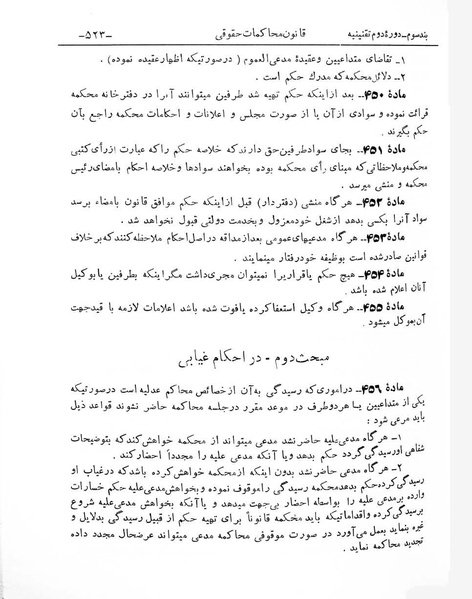 بند سوم-دوره دوم تقنینیه    قانون محاکمات حقوقی    -۵۲۳-
۱- تقاضای متداعیین وعقیدهٔ مدعی‌العموم ( درصورتیکه اظهارعقیده نموده) .
۲- دلائل محکمه که مدرک حکم است .
مادهٔ ۴۵۰- بعد ازاینکه حکم تهیه شد طرفین میتوانند آنرا در دفترخانه محکمه
قرائت نموده و سوادی ازآن یا از صورت مجلس و اعلانات و احکامات محکمه راجع بآن
حکم بگیرند .
مادهٔ ۴۵۱- بجای سوادطرفین حق دارندکه خلاصه حکم راکه عبارت ازرأی کتبی
محکمه وملاحظاتی که مبنای رأی محکمه بوده بخواهند سوادها وخلاصه احکام بامضای رئیس
محکمه و منشی میرسد .
مادهٔ ۴۵۲- هر گاه منشی (دفتردار) قبل ازاینکه حکم موافق قانون بامضاء برسد
سواد آنرا بکسی بدهد ازشغل خودمعزول وبخدمت دولتی قبول نخواهد شد .
مادهٔ ۴۵۳- هر گاه مدعیهای‌عمومی بعدازمداقه دراصل احکام ملاحظه کنندکه برخلاف
قوانین صادرشده است بوظیفه خودرفتار مینمایند .
مادهٔ ۴۵۴- هیچ حکم یاقراریرا نمیتوان مجری‌داشت مگراینکه بطرفین یابوکیل
آنان اعلام شده باشد .
مادهٔ ۴۵۵- هر گاه وکیل استعفاکرده یافوت شده باشد اعلامات لازمه با قیدجهت
آن‌بموکل میشود .
مبحث دوم - در احکام غیابی
مادهٔ ۴۵۶- دراموری‌که رسیدگی به‌آن ازخصائص محاکم عدلیه است درصورتیکه
یکی از متداعیین یا هردوطرف در موعد مقرر درجلسه محاکمه حاضر نشوند قواعد ذیل
باید مرعی شود :
۱- هر گاه مدعی‌علیه حاضر نشد مدعی میتواند از محکمه خواهش‌کندکه بتوضیحات
شفاهی اورسیدگی کردد حکم بدهد ویا آنکه مدعی علیه را مجدداً احضارکند .
۲- هر گاه مدعی حاضر نشد بدون اینکه ازمحکمه خواهش‌کرده باشدکه درغیاب او
رسیدگی کرده‌حکم بدهدمحکمه رسیدگی راموقوف نموده وبخواهش‌مدعی‌علیه حکم خسارات
وارده برمدعی علیه را بواسطه احضار بی‌جهت میدهد و یاآنکه بخواهش مدعی‌علیه شروع
برسیدگی کرده واقداماتیکه باید محکمه قانوناً برای تهیه حکم از قبیل رسیدگی بدلایل و
غیره بنماید بعمل می‌آورد در صورت موقوفی محاکمه مدعی میتواند عرضحال مجدد داده
تجدید محاکمه نماید .